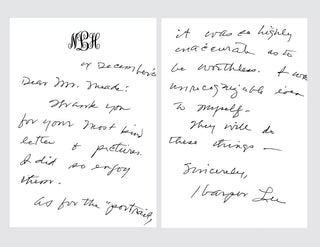 NLH
4 December
Dear Mr. Meade:
Thank you
for your most kind
letter & pictures.
I did so enjoy
them.
As for the "portrait,
it was so highly
inaccurate as to
be worthless. I was
unrecognizable even
to myself.
They will do
these things —
Sincerely,
Harper Lee